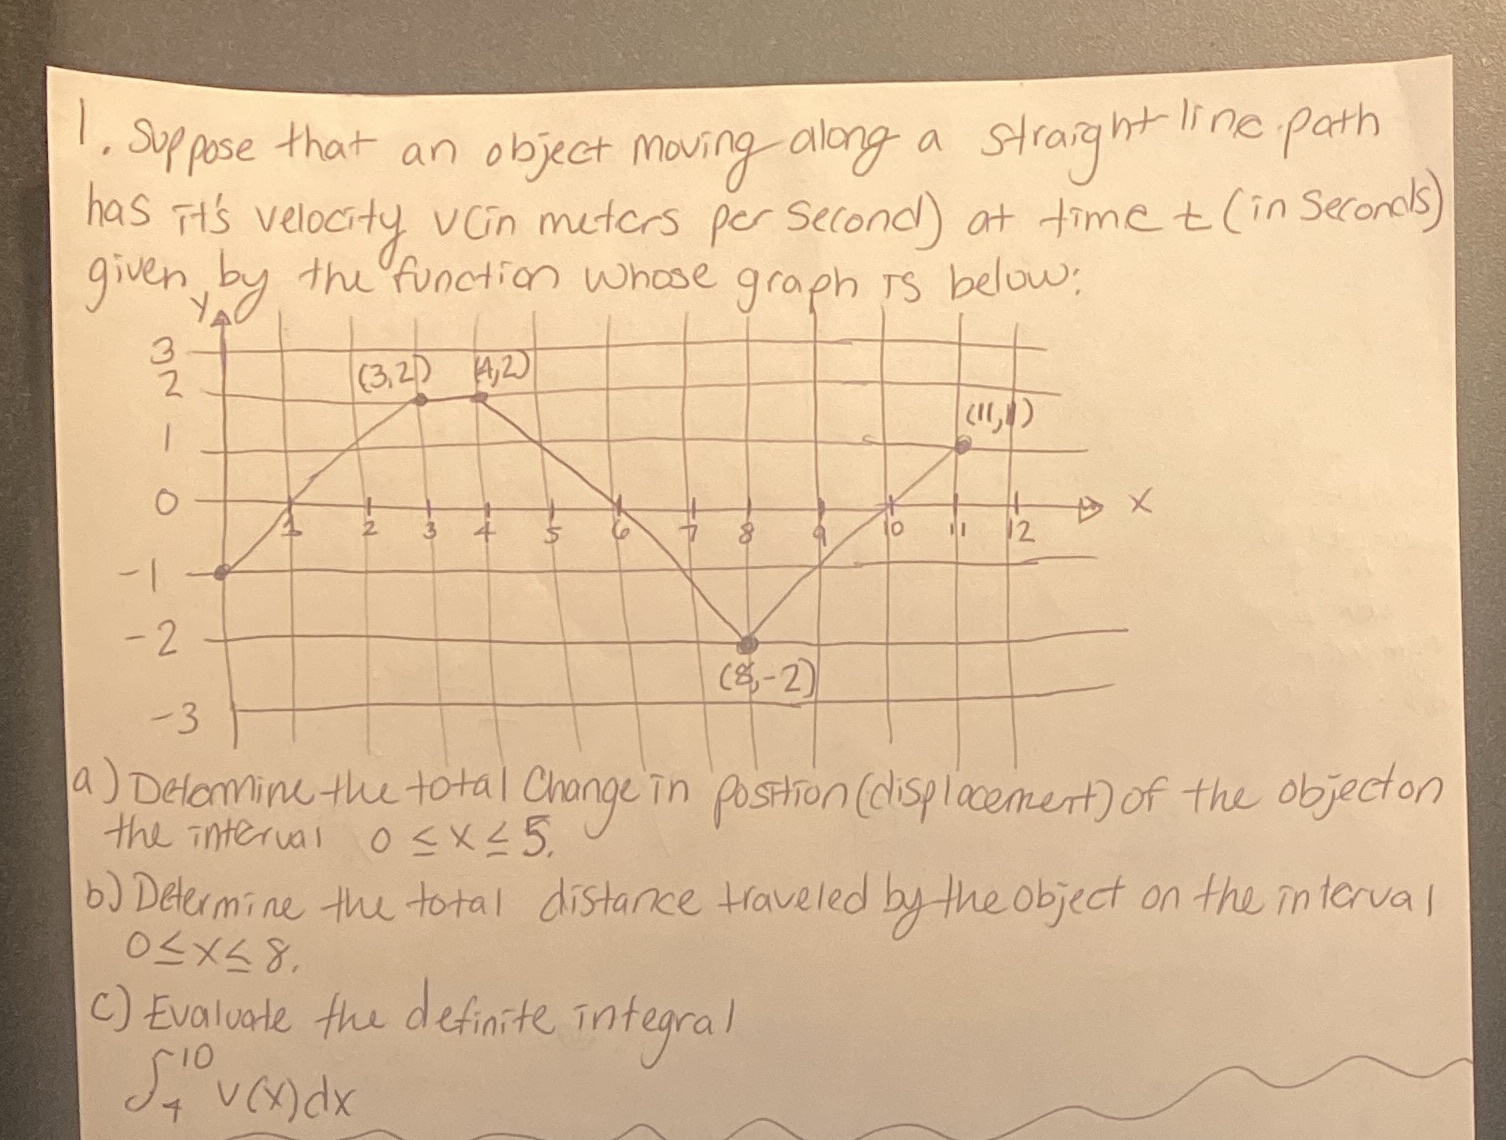 1. Suppose that an object moving along a straight line path
has it's velocity v(in meters per second) at time t (in seconds)
given by the function whose graph is below:
y
3
(3,2) (4,2)
2
(11,1)
1
0
x
1 2 3 4 5 6 7 8 9 10 11 12
-1
-2
(8,-2)
-3
a) Determine the total change in position (displacement) of the object on
the interval 0 ≤ x ≤ 5.
b) Determine the total distance traveled by the object on the interval
0 ≤ x ≤ 8.
c) Evaluate the definite integral
∫₄¹⁰ v(x)dx